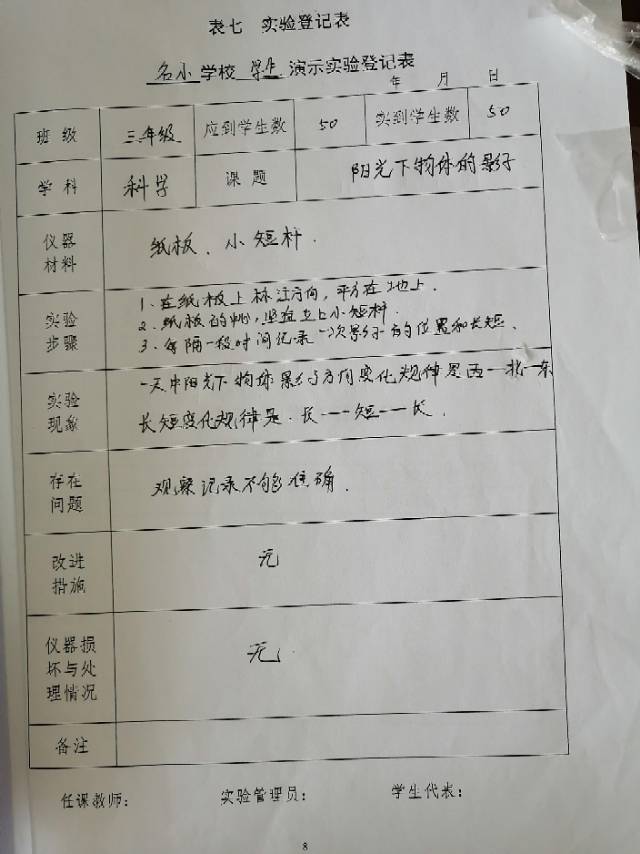 表七 实验登记表
名小 学校 学生 演示实验登记表
年 月 日
班级 三年级 应到学生数 50 实到学生数 50
学科 科学 课题 阳光下物体的影子
仪器材料 纸板、小短杆.
实验步骤 1、在纸板上标注方向,平方在地上.
2、纸板的中心,竖直立上小短杆.
3、每隔一段时间记录一次影子的位置和长短.
实验现象 一天中阳光下物体影子方向变化规律是西--北--东
长短变化规律是.长---短---长.
存在问题 观察记录不够准确.
改进措施 无
仪器损坏与处理情况 无
备注
任课教师: 实验管理员: 学生代表:
8